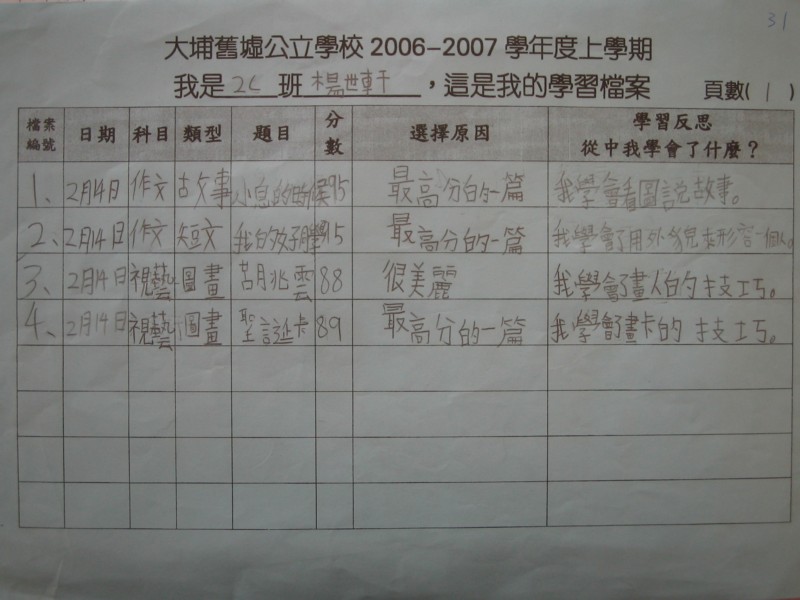 31
大埔舊墟公立學校 2006-2007 學年度上學期
我是 2C 班 楊世軒 ，這是我的學習檔案 頁數( 1 )
檔案編號 日期 科目 類型 題目 分數 選擇原因 學習反思 從中我學會了什麼？
1、 2月14日 作文 故事 小息的時候 95 最高分的一篇 我學會看圖說故事。
2、 2月14日 作文 短文 我的好 15 最高分的一篇 我學會了用外貌來形容一個人。
3、 2月14日 視藝 圖畫 胡兆雲 88 很美麗 我學會了畫人的技巧。
4、 2月14日 視藝 圖畫 聖誕卡 89 最高分的一篇 我學會了畫卡的技巧。